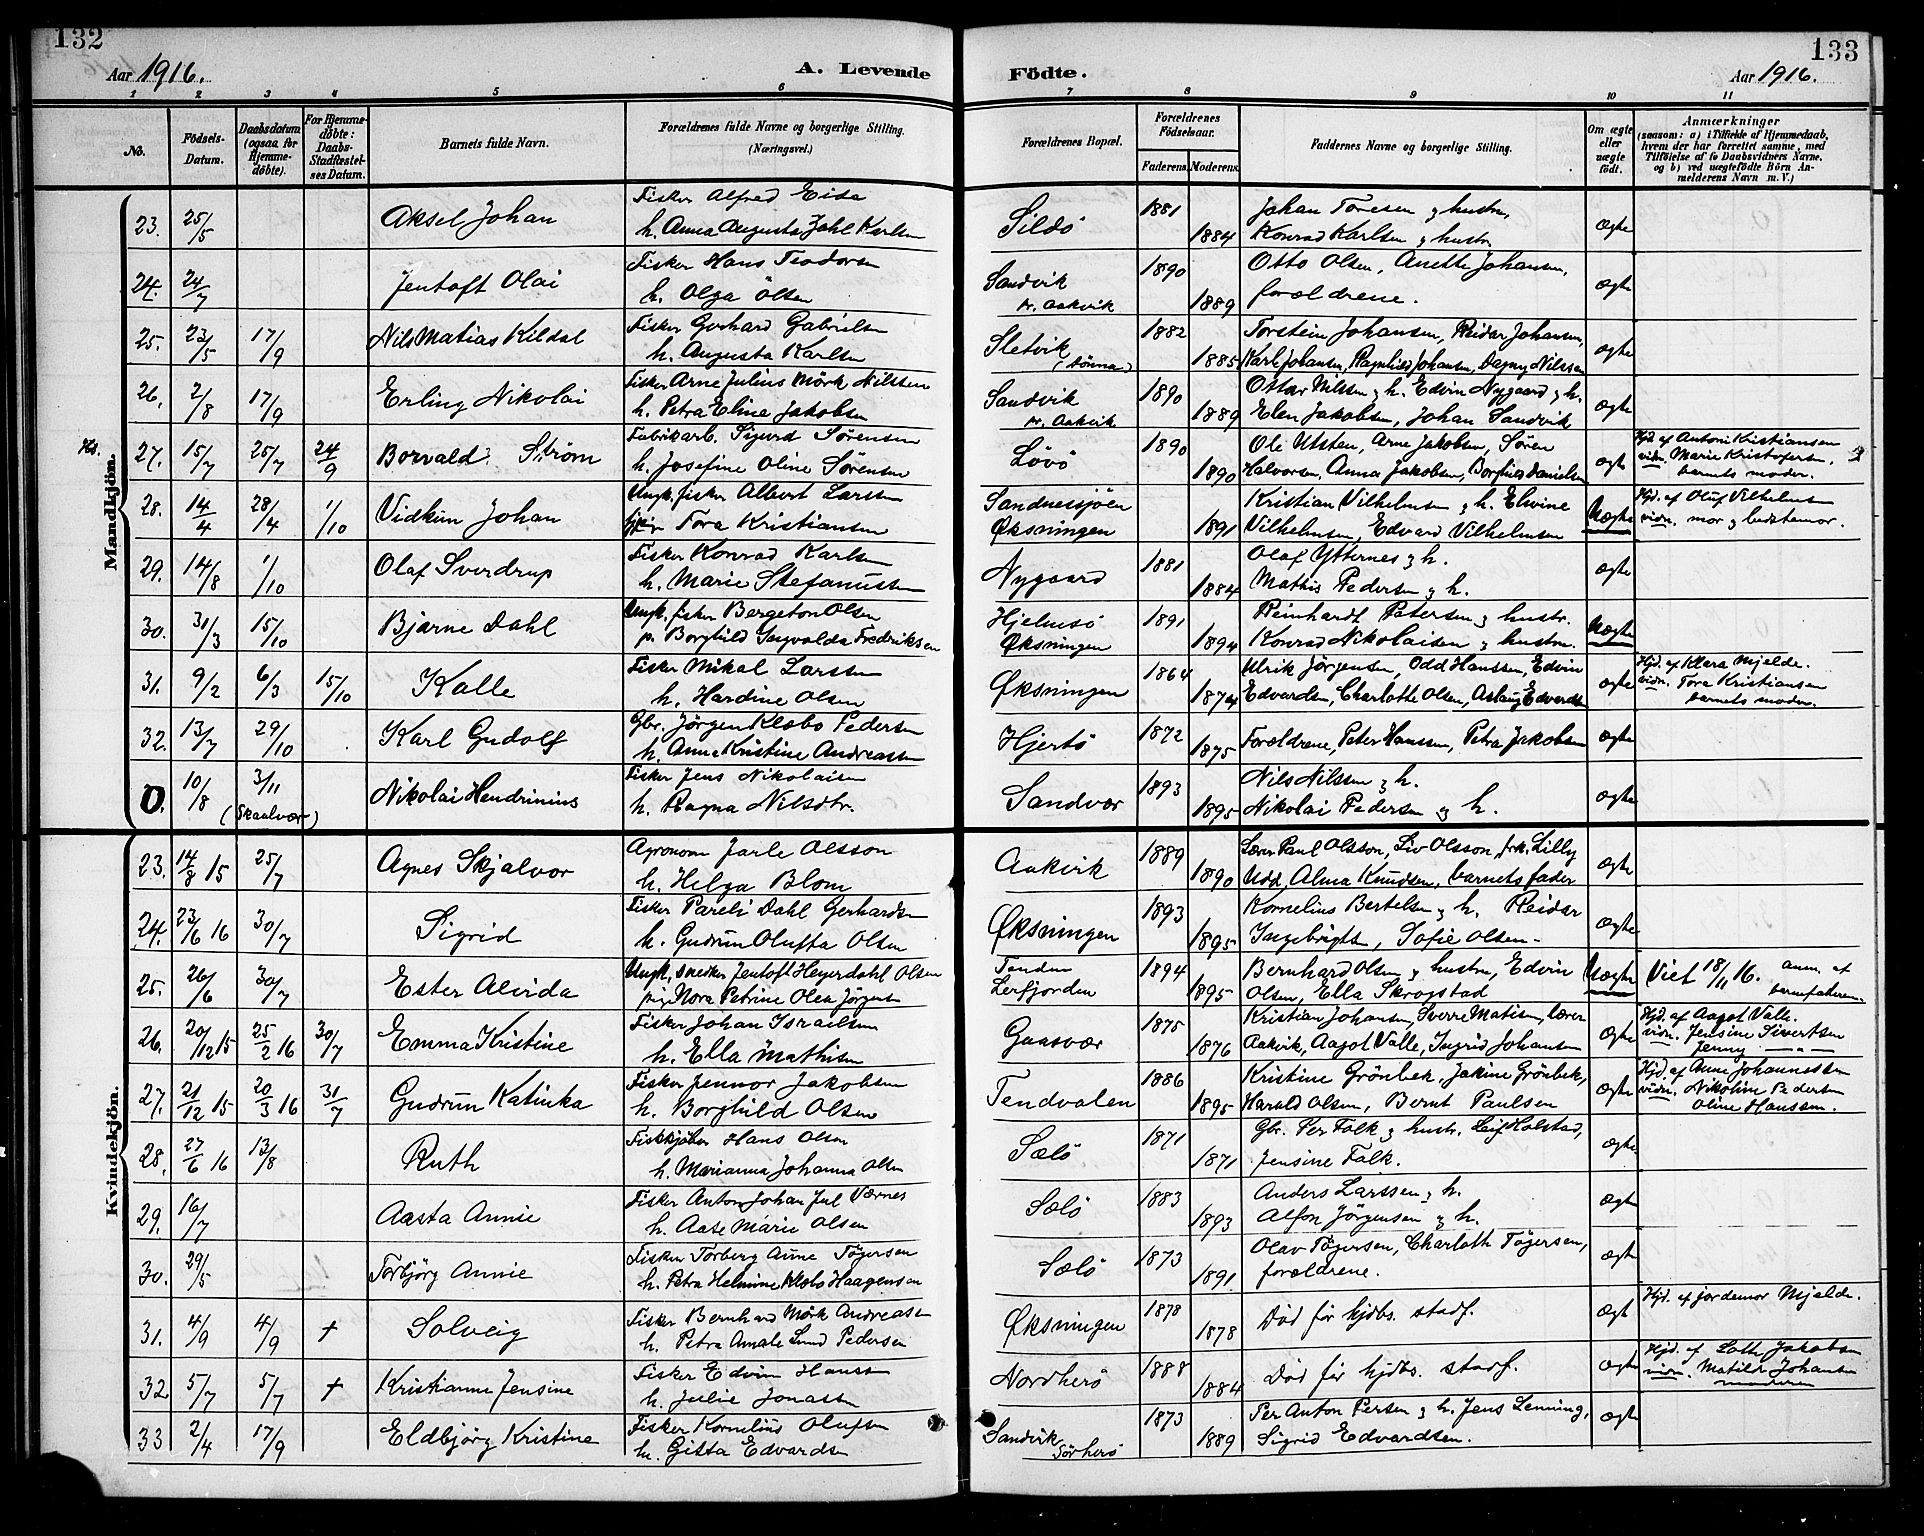 132
133
Aar 1916.
A. Levende Födte.
Aar 1916.
1 2 3 4 5 6 7 8 9 10 11
No.
Födsels-Datum.
Daabsdatum (ogsaa for Hjemme-døbte).
For Hjemme-døbte: Daabs-Stadfæstel-ses Datum.
Barnets fulde Navn.
Forældrenes fulde Navne og borgerlige Stilling. (Næringsvei.)
Forældrenes Bopæl.
Forældrenes Födselsaar.
Faderens. Moderens.
Faddernes Navne og borgerlige Stilling.
Om ægte eller uægte født.
Anmærkninger
(saasom: a) i Tilfælde af Hjemmedaab,
hvem der har forrettet samme, med
Tilföielse af to Daabsvidners Navne,
og b) ved uægtefödte Börn An-
melderens Navn m. V.)
Mandkjön.
23. 25/5 Aksel Johan Fisker Alfred Eida Sildö 1881 Johan Toresen & hustru, ægte
h. Anna Augusta Dahl Karlsen 1884 Konrad Karlsen & hustru
24. 24/7 Jentoft Olai Fisker Hans Teodorsen Sandvik 1890 Otto Olsen, Anette Johansen, ægte
h. Olga Olsen pr. Aakvik 1889 forældrene.
25. 23/5 17/9 Nils Matias Kildal Fisker Gerhard Gabrielsen Sletvik 1882 Torstein Johansen, Reidar Johansen, ægte
h. Augusta Karlsen (Dönna) 1885 Karl Johansen, Ragnhild Johansen, Dagny Nilssen
26. 2/8 17/9 Erling Nikolai Fisker Arne Julius Mörk Nilssen Sandvik 1890 Ottar Nilssen & h. Edvin Nygaard & h. ægte
h. Petra Eline Jakobsen pr. Aakvik 1889 Elen Jakobsen, Johan Sandvik
27. 15/7 25/7 24/9 Borvald Ström Fabrikarb. Sigurd Sörensen Lövö 1890 Ole Utsten, Arne Jakobsen, Sören ægte Hjd. af Antoni Kristiansen
h. Josefine Oline Sörensen 1890 Halvorsen, Anna Jakobsen, Borghild Danielsen vidn. Marie Kristofersen,
barnets moder.
28. 14/4 28/4 1/10 Vidkun Johan Ungk. fisker Albert Larssen Sandnessjøen Kristian Vilhelmsen & h. Elvine Uægte Hjd. af Oluf Vilhelmsen
Tora Kristiansen Øksningen 1891 Vilhelmsen, Edvard Vilhelmsen vidn. mor & bedstemor.
29. 14/8 1/10 Olaf Sverdrup Fisker Konrad Karlsen Nygaard 1881 Olaf Ytternes & h. ægte
h. Marie Stefanussen 1884 Mathis Pedersen & h.
30. 31/3 15/10 Bjarne Dahl Ungk. fisker Bergeton Olsen Hjelmsö 1891 Reinhardt Petersen & hustr. Uægte
p. Borghild Ingvalda Fredriksen Øksningen 1894 Konrad Nikolaisen & hustru.
31. 9/2 6/3 15/10 Kalle Fisker Mikal Larssen Øksningen 1864 Ulrik Jörgensen, Odd Hanssen, Edvin ægte Hjd. af Klara Mjelde.
h. Hardine Olsen 1874 Edvardsen, Charlotte Olsen, Aslaug Edvardsen vidn. Tora Kristiansen
barnets moder.
32. 13/7 29/10 Karl Gudolf Gbr. Jörgen Klæbo Pedersen Hjertö 1872 Forældrene, Peter Hanssen, Petra Jakobsen ægte
h. Anna Kristine Andreassen 1875
0. 10/8 3/11 (Skaalvær) Nikolai Hendrinius Fisker Jens Nikolaisen Sandvær 1893 Nils Nilssen & h. ægte
h. Ragna Nilsdtr. 1895 Nikolai Pedersen & h.
Kvindekjön.
23. 14/8 15 25/7 Agnes Skjalvor Agronom Jarle Olsson Aakvik 1889 Lærer Paul Olsson, Liv Olsson, frk. Lilly ægte
h. Helga Blom 1890 Udd, Alma Knudsen, barnets fader
24. 23/6 16 30/7 Sigrid Fisker Pareli Dahl Gerhardsen Øksningen 1893 Kornelius Bertelsen & h. Reidar ægte
h. Gudrun Olufta Olsen 1895 Ingebrigts, Sofie Olsen.
25. 26/6 30/7 Ester Alvida Ungk. snedker Jentoft Heyerdahl Olsen 1894 Bernhard Olsen & hustru, Edvin Uægte Viet 18/11 16. Anm. af
pige Nora Petrine Olea Jörgensen Leirfjorden 1895 Olsen, Ella Skrogstad barnefaderen.
26. 20/12 15 25/2 16 30/7 Emma Kristine Fisker Johan Israelsen Gaasvær 1875 Kristian Johansen, Sverre Matisen, lærer ægte Hjd. af Aagot Valle.
h. Ella Mathisen 1876 Aakvik, Aagot Valle, Ingrid Johansen vidn. Jensine Sivertsen
Jenny — " —
27. 21/12 15 20/3 16 31/7 Gudrun Katinka Fisker Jennor Jakobsen Tendvalen 1886 Kristine Grönbek, Jakine Grönbek, ægte Hjd. af Anne Johannessen
h. Borghild Olsen 1895 Harald Olsen, Bernt Paulsen vidn. Nikoline Pedersen
Oline Hanssen.
28. 27/6 16 13/8 Ruth Fiskekjøber Hans Olsen Sælö 1871 Gbr. Per Falk & hustr. Leif Holstad, ægte
h. Marianna Johanna Olsen 1871 Jensine Falk.
29. 16/7 Aasta Annie Fisker Anton Johan Jul Værnes Sælö 1883 Anders Larssen & h. ægte
h. Aase Marie Olsen 1893 Alfon Jörgensen & h.
30. 29/5 Torbjörg Annie Fisker Torberg Aune Tögersen Sælö 1873 Olav Tögersen, Charloth Tögersen, ægte
h. Petra Helmine Klæbo Haagensen 1891 forældrene.
31. 4/9 4/9 † Solveig Fisker Bernhard Mörk Andreassen Øksningen 1878 Död för hjdbs. stadf. ægte Hjd. af jordemor Mjelde.
h. Petra Amalie Lund Pedersen 1878
32 5/7 5/7 † Kristianne Jensine Fisker Edvin Hanssen Nordherö 1888 Död för hjdbs. stadf. ægte Hjd. af Lotte Jakobsen
h. Julie Jonassen 1884 vidn. Matilde Johansen
moderen
33 2/4 17/9 Eldbjörg Kristine Fisker Kornelius Olufsen Sandvik 1873 Per Anton Persen & h. Jens Lenning, ægte
h. Gitta Edvardsen Sörherö 1889 Sigrid Edvardsen.